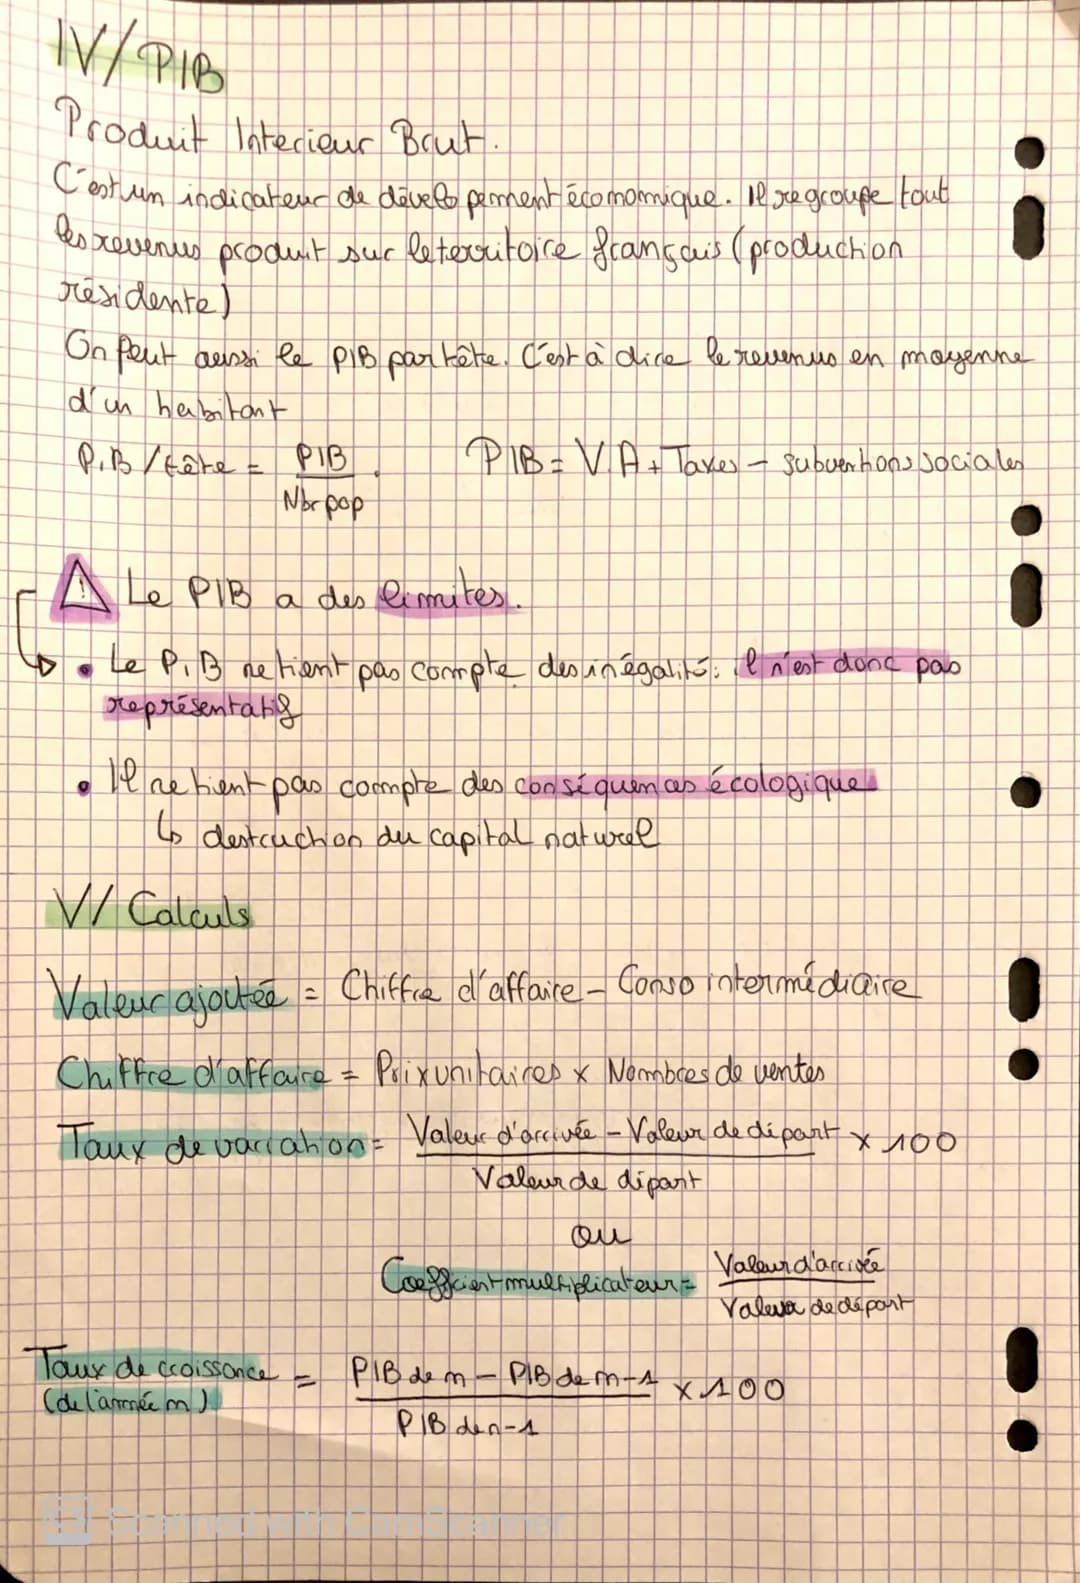 IV/ PIB
Produit Interieur Brut.
C'est un indicateur de développement économique. Il regroupe tout
les revenus produit sur le territoire français (production
résidente)
On peut aussi le PIB par tête. C'est à dire le revenus en moyenne
d'un habitant
P.I.B / tête = PIB / Nbr pop. PIB = V.A + Taxes - subventions sociales
⚠ Le PIB a des limites.
• Le P.I.B ne tient pas compte des inégalité: il n'est donc pas
représentatif
• Il ne tient pas compte des conséquences écologique
↳ destruction du capital naturel
V/ Calculs
Valeur ajoutée = Chiffre d'affaire - Conso intermédiaire
Chiffre d'affaire = Prix unitaires x Nombres de ventes
Taux de variation = Valeur d'arrivée - Valeur de départ / Valeur de départ x 100
ou
Coefficient multiplicateur = Valeur d'arrivée / Valeur de départ
Taux de croissance = PIB de n - PIB de n-1 / PIB de n-1 x 100
(de l'année n)
Scanned with CamScanner